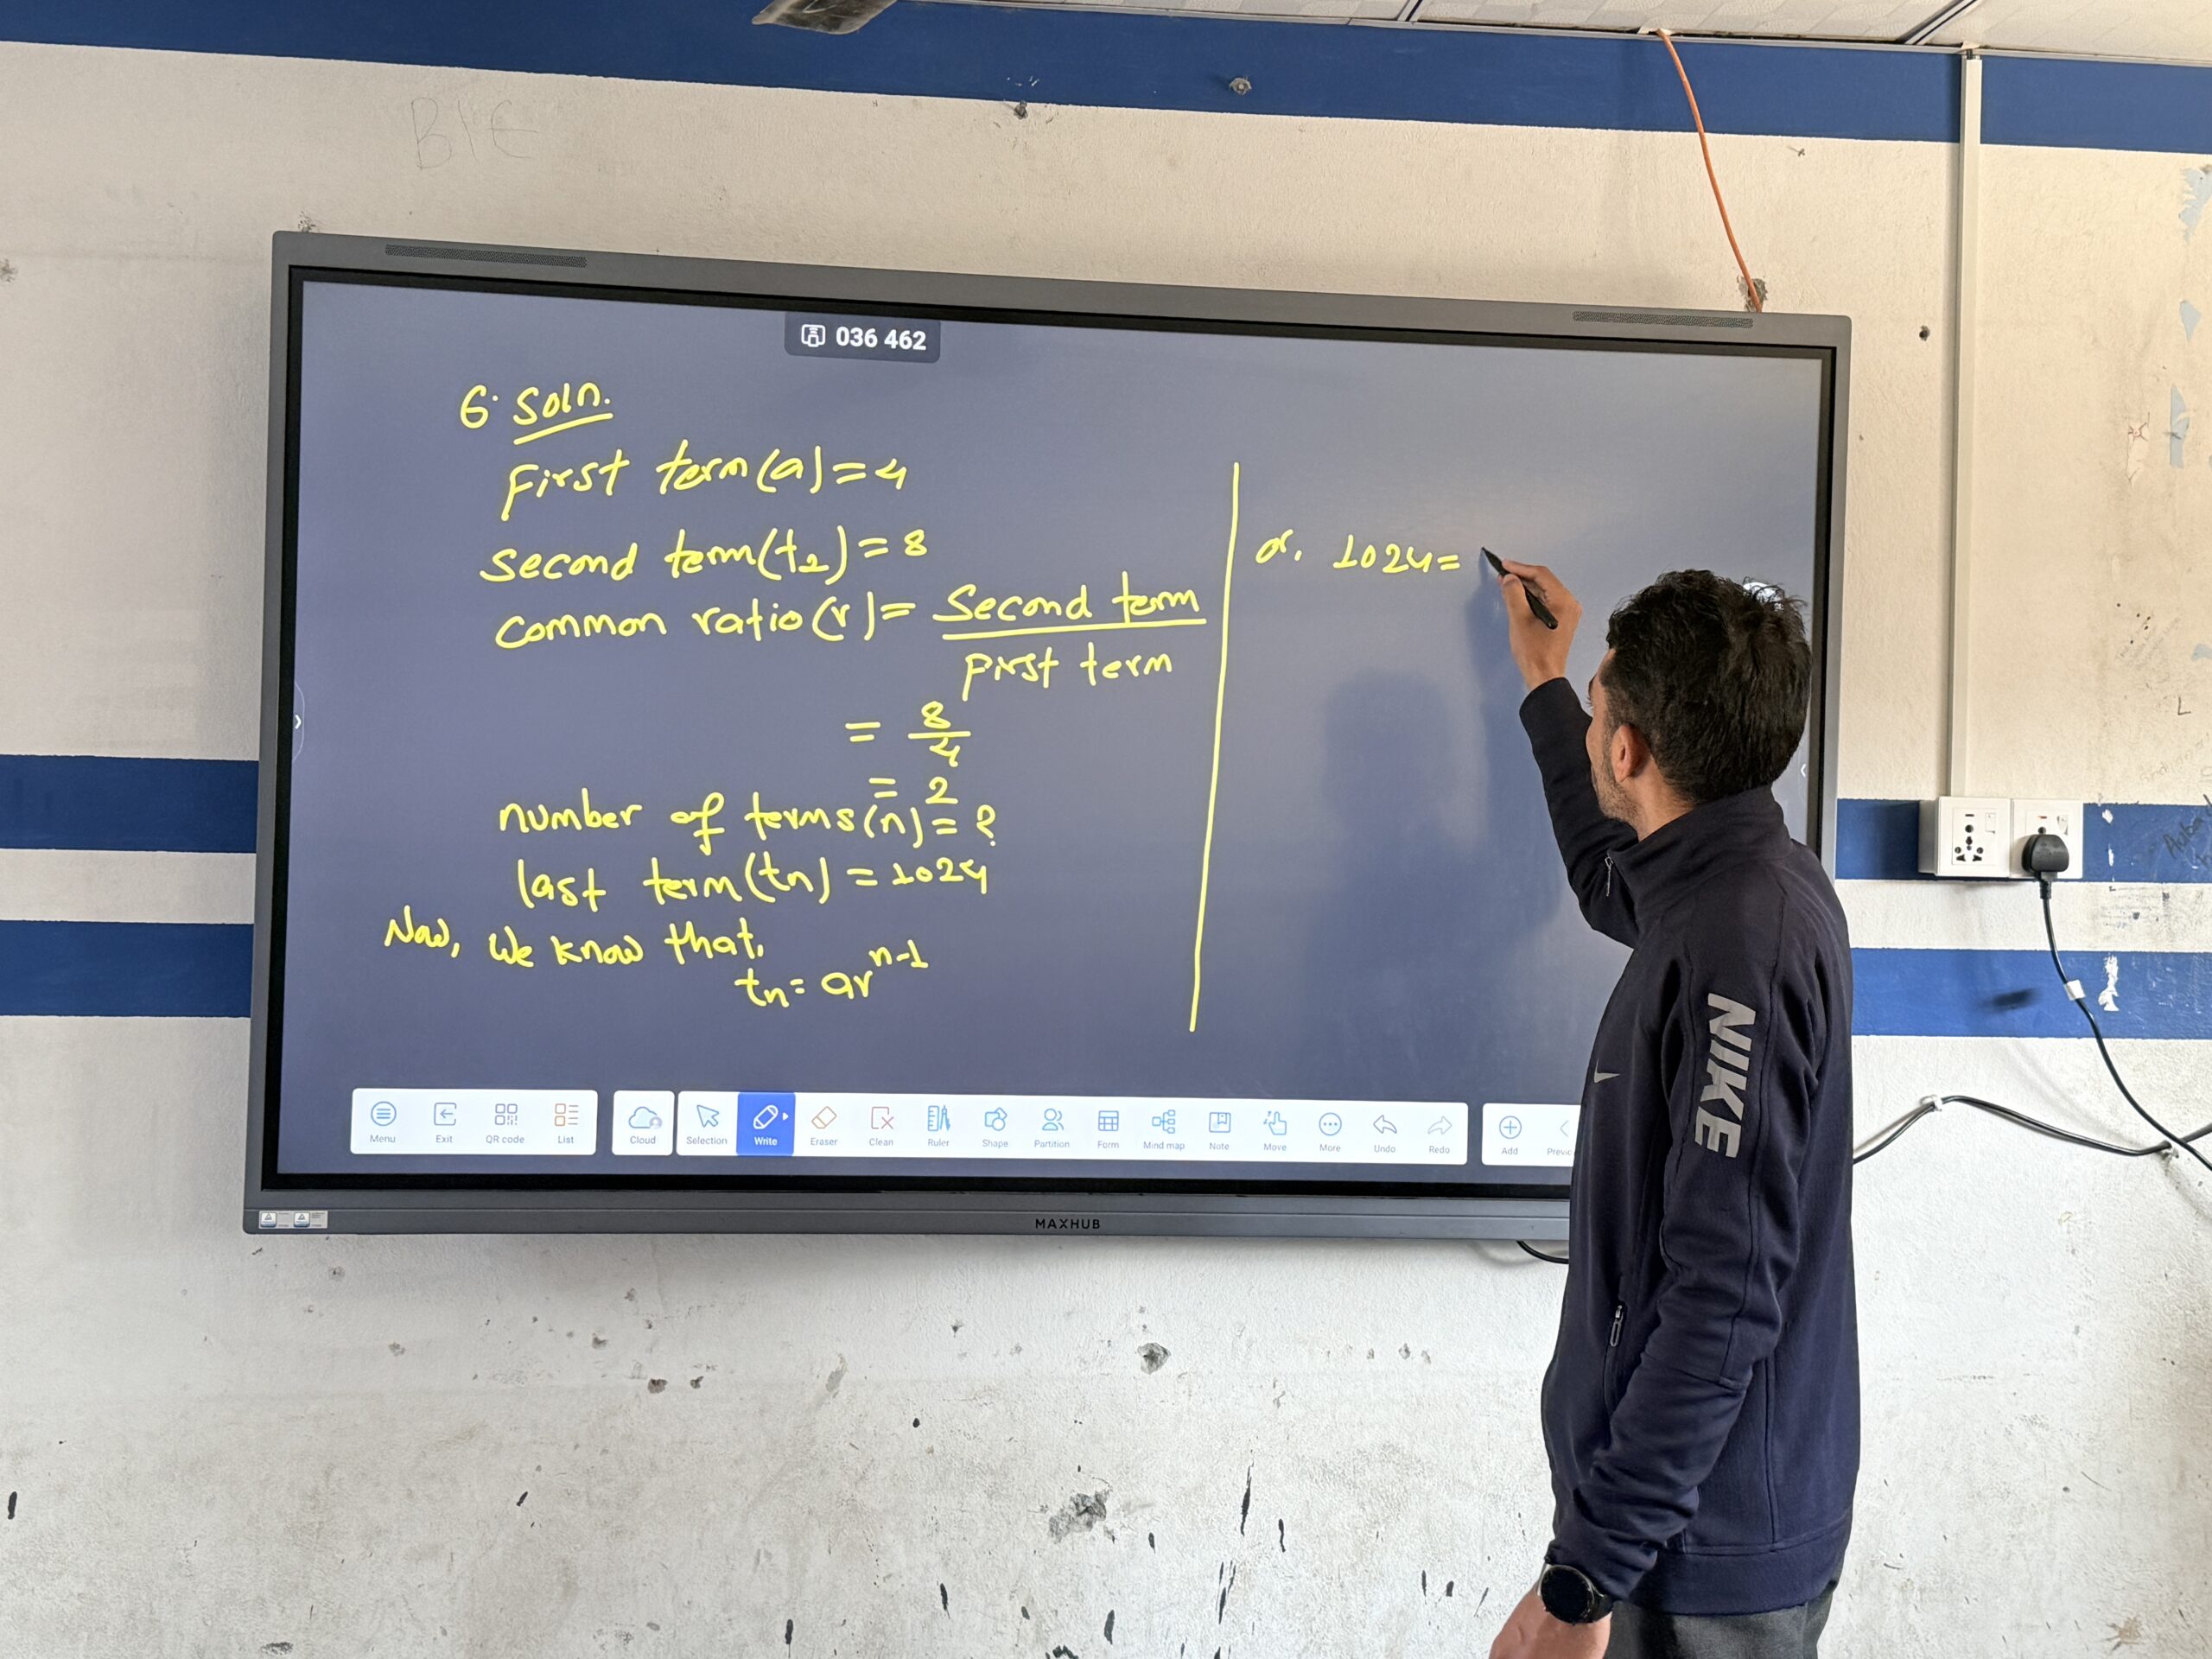 BIE
036 462
6. Soln.
First term(a)=4
Second term(t2)=8
common ratio(r)= Second term
First term
= 8
4
= 2
number of terms(n)=?
last term(tn)=1024
Now, We know that,
tn= ar^n-1
or, 1024=
NIKE
Menu Exit QR code List Cloud Selection Write Eraser Clean Ruler Shape Partition Form Mind map Note Move More Undo Redo Add
MAXHUB